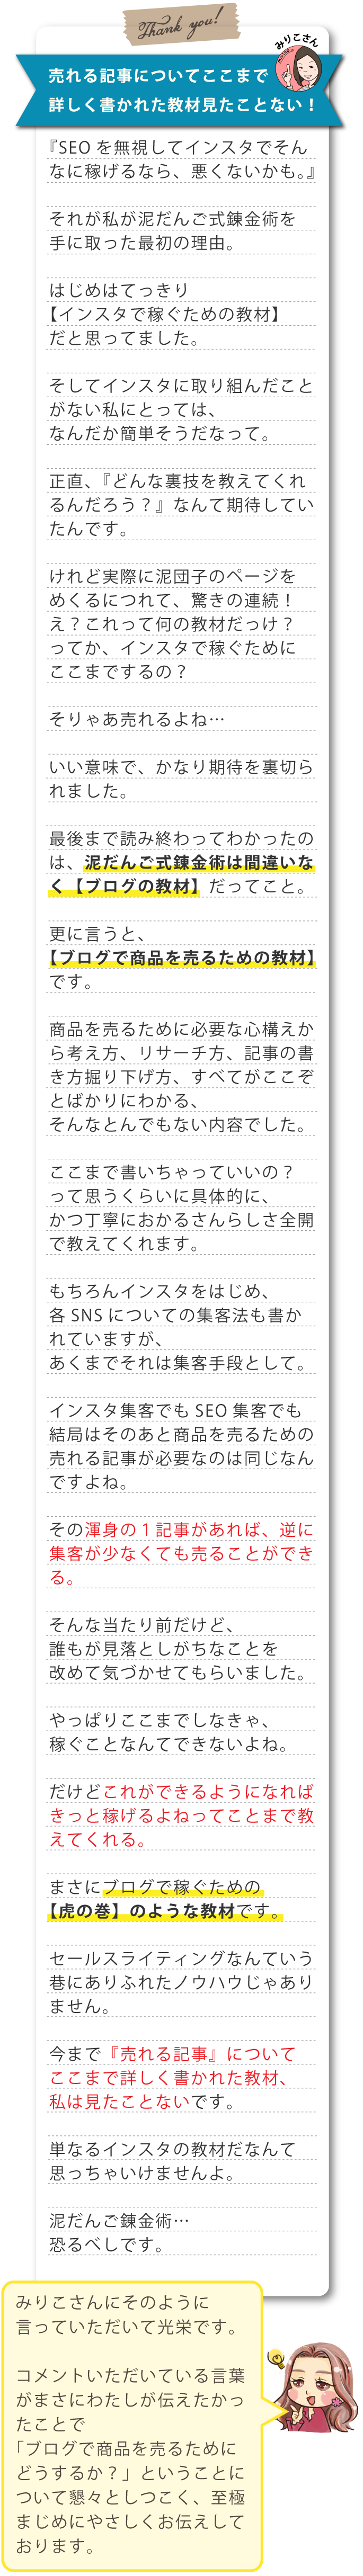 Thank you!
みりこさん
売れる記事についてここまで
詳しく書かれた教材見たことない！
『SEOを無視してインスタでそん
なに稼げるなら、悪くないかも。』
それが私が泥だんご式錬金術を
手に取った最初の理由。
はじめはてっきり
【インスタで稼ぐための教材】
だと思ってました。
そしてインスタに取り組んだこと
がない私にとっては、
なんだか簡単そうだなって。
正直、『どんな裏技を教えてくれ
るんだろう？』なんて期待してい
たんです。
けれど実際に泥団子のページを
めくるにつれて、驚きの連続！
え？これって何の教材だっけ？
ってか、インスタで稼ぐために
ここまでするの？
そりゃあ売れるよね…
いい意味で、かなり期待を裏切ら
れました。
最後まで読み終わってわかったの
は、泥だんご式錬金術は間違いな
く【ブログの教材】だってこと。
更に言うと、
【ブログで商品を売るための教材】
です。
商品を売るために必要な心構えか
ら考え方、リサーチ方、記事の書
き方掘り下げ方、すべてがここぞ
とばかりにわかる、
そんなとんでもない内容でした。
ここまで書いちゃっていいの？
って思うくらいに具体的に、
かつ丁寧におかるさんらしさ全開
で教えてくれます。
もちろんインスタをはじめ、
各SNSについての集客法も書か
れていますが、
あくまでそれは集客手段として。
インスタ集客でもSEO集客でも
結局はそのあと商品を売るための
売れる記事が必要なのは同じなん
ですよね。
その渾身の１記事があれば、逆に
集客が少なくても売ることができ
る。
そんな当たり前だけど、
誰もが見落としがちなことを
改めて気づかせてもらいました。
やっぱりここまでしなきゃ、
稼ぐことなんてできないよね。
だけどこれができるようになれば
きっと稼げるよねってことまで教
えてくれる。
まさにブログで稼ぐための
【虎の巻】のような教材です。
セールスライティングなんていう
巷にありふれたノウハウじゃあり
ません。
今まで『売れる記事』について
ここまで詳しく書かれた教材、
私は見たことないです。
単なるインスタの教材だなんて
思っちゃいけませんよ。
泥だんご錬金術…
恐るべしです。
みりこさんにそのように
言っていただいて光栄です。
コメントいただいている言葉
がまさにわたしが伝えたかっ
たことで
「ブログで商品を売るために
どうするか？」ということに
ついて懇々としつこく、至極
まじめにやさしくお伝えして
おります。